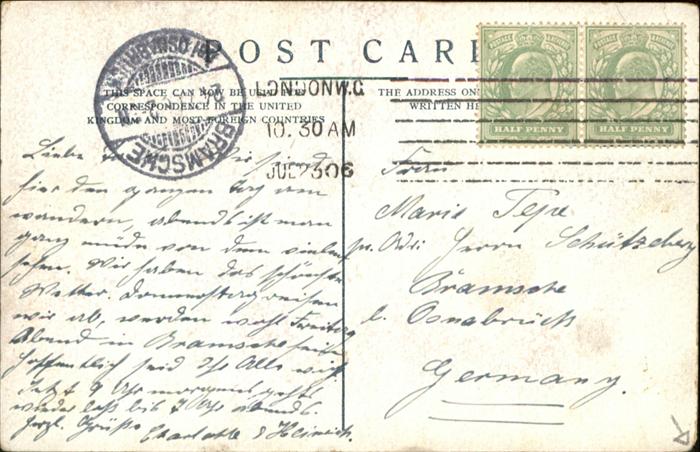 POST CARD
THIS SPACE CAN NOW BE USED FOR
CORRESPONDENCE IN THE UNITED
KINGDOM AND MOST FOREIGN COUNTRIES
THE ADDRESS ON
WRITTEN HE
LONDON W.C
10.30 AM
JUL 23 06
BRAMSCHE
HALF PENNY
HALF PENNY
Liebe
hier den ganzen Tag am
wandern, abends ist man
ganz müde von dem vielen
sehen. Wir haben das schönste
Wetter. Donnerstag reisen
wir ab, werden wohl Freitag
Abend in Bramsche sein
hoffentlich seid Ihr Alle
Jetzt 9 Uhr morgens geht
wieder los bis 7 Uhr abends.
Herzl. Grüße Charlotte & Heinrich.
Frau
Marie Tepe
pr. Adr. Herrn Schützeberg
Bramsche
b. Osnabrück
Germany.